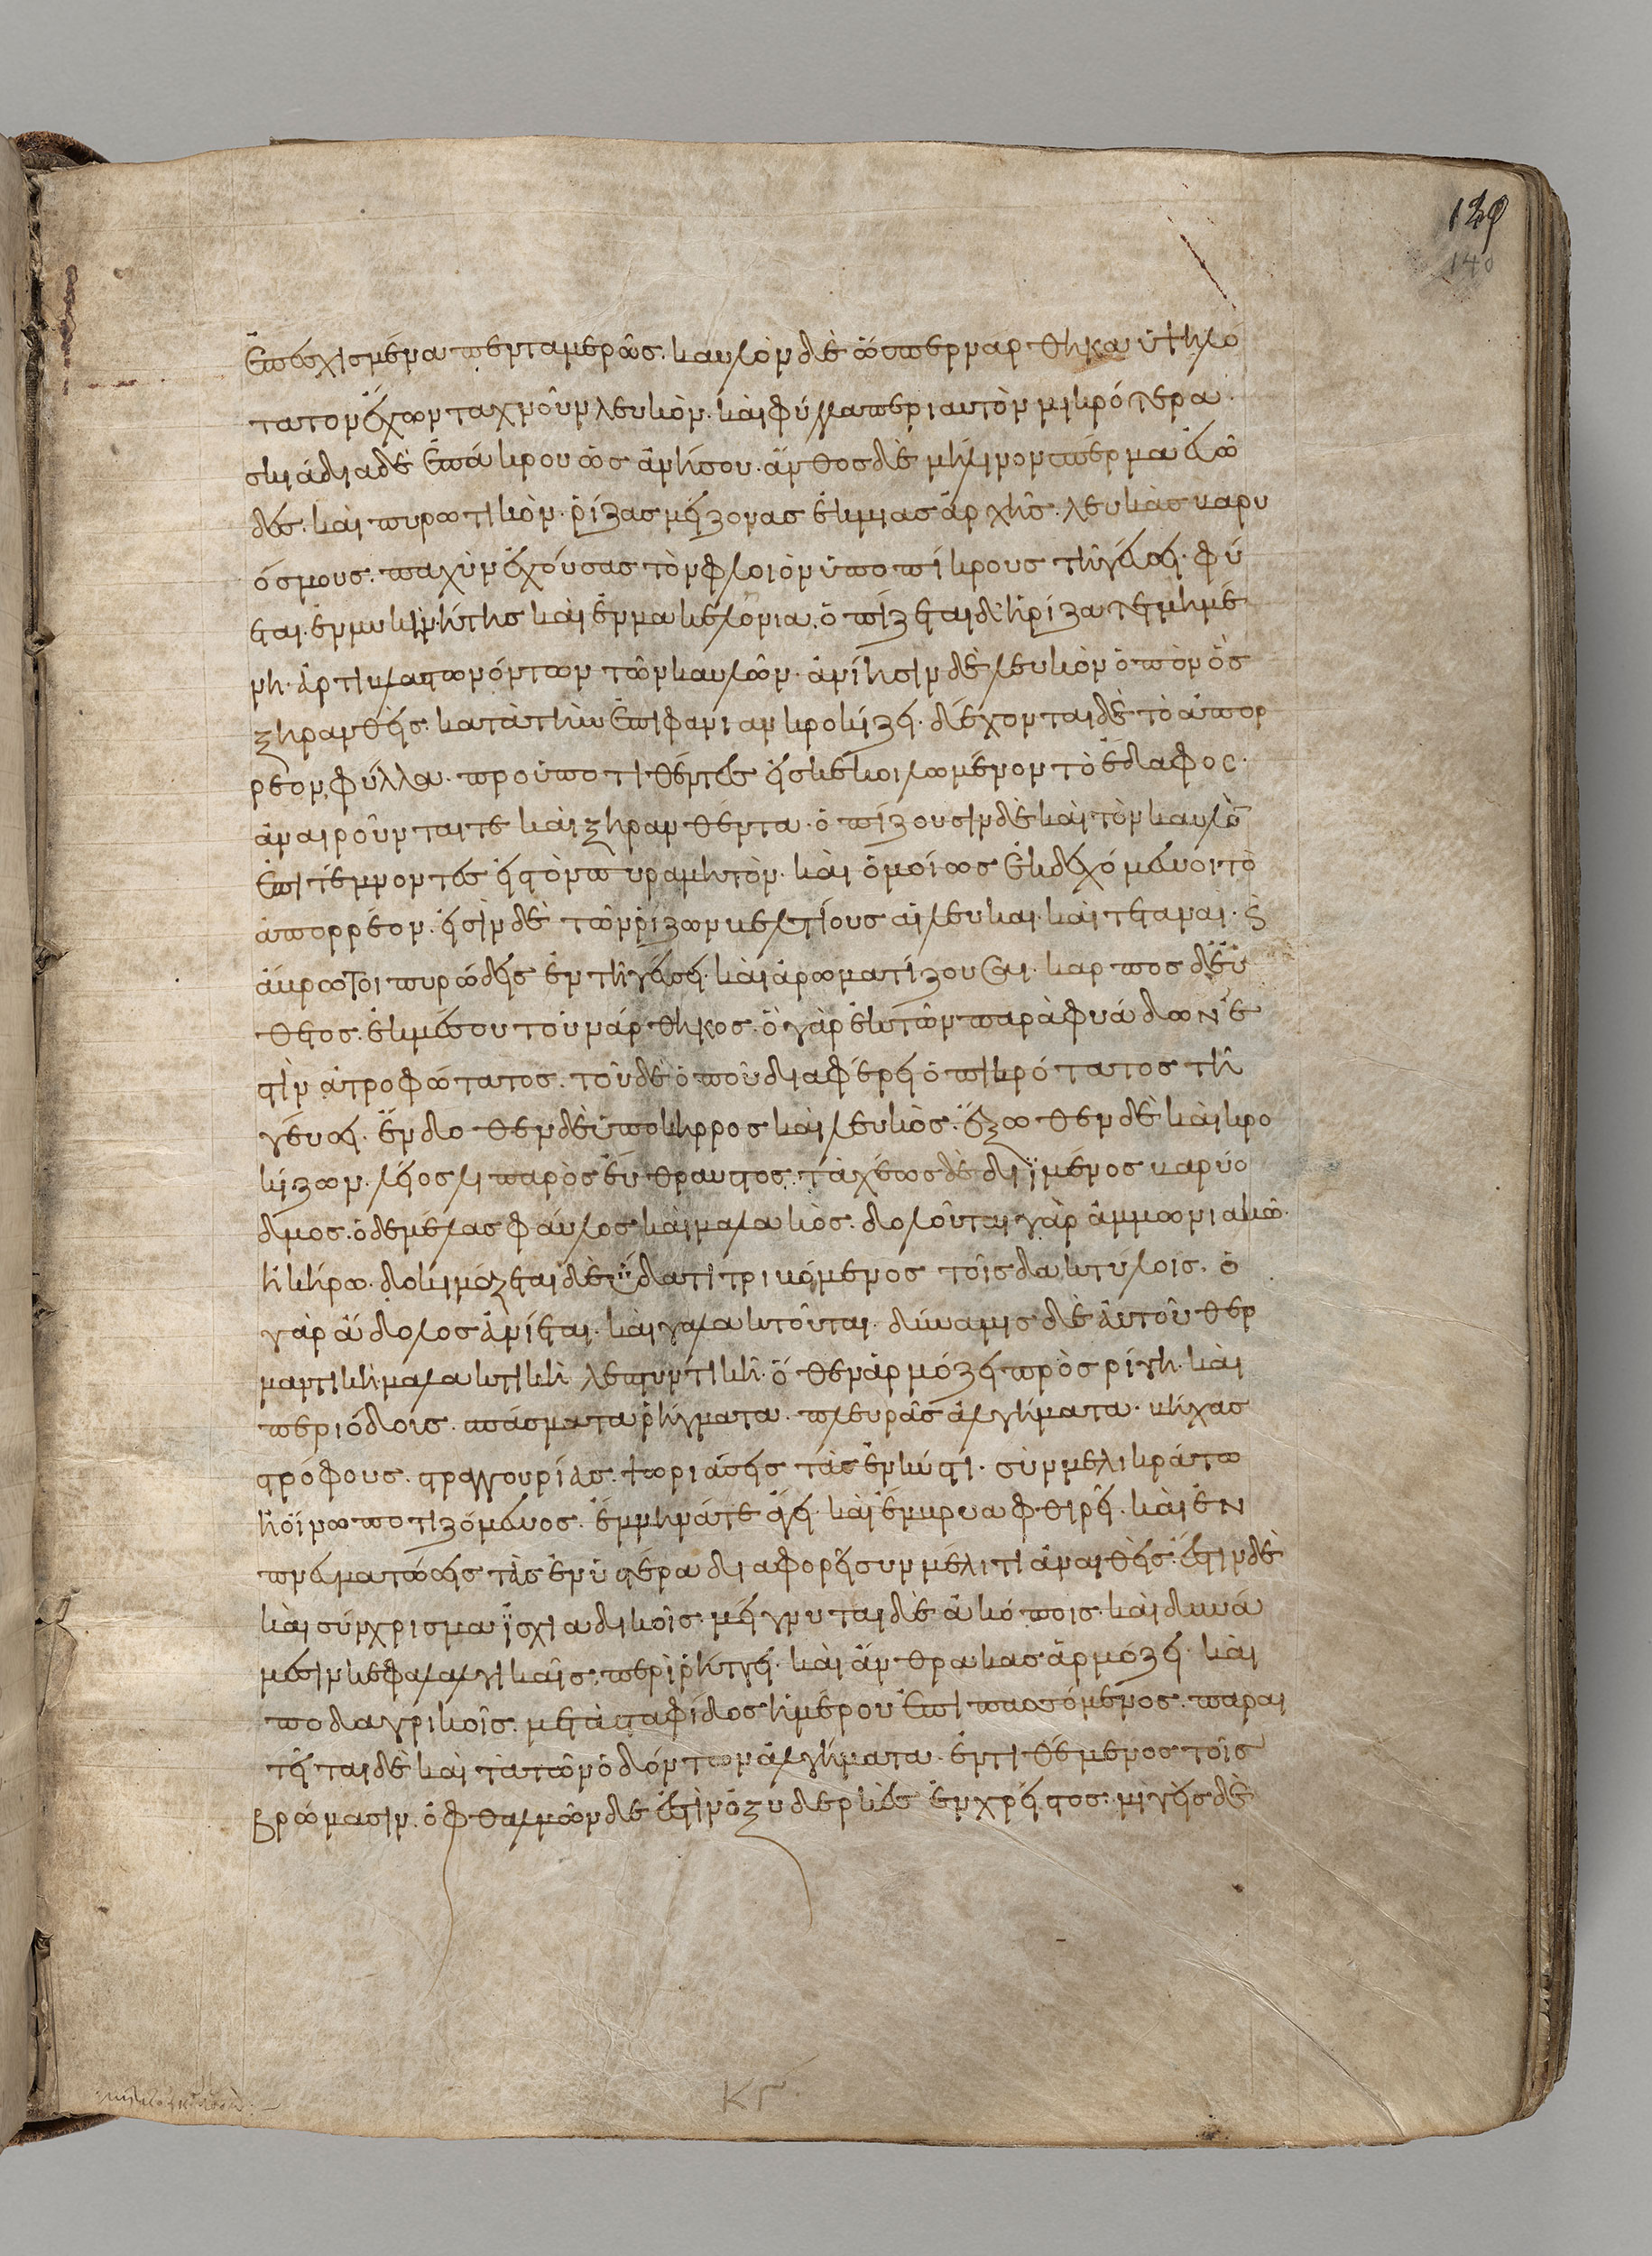 139
140
ἐπεσχισμένα πενταμερῶς. καυλὸν δὲ ὥσπερ ναρθηκα ὑψηλό
τατον ἔχων τα χνοῦν λευκὸν. καὶ φύλλα περι αυτὸν μικρότερα.
σκιάδια δὲ ἐπάκρου ὡς ἀνήσου. ἄνθος δὲ μήλινον σπέρμα εὐῶ
δές. καὶ πυρωτικὸν. ῥίζας μείζονας ἐκ μιας ἀρχῆς. λευκὰς καρυ
όσμους. παχὺν ἐχόυσας τὸν φλοιὸν ὑποπίκρους τῆ γεύσει. φύ
εται. ἐν μυκὴν.ήτης καὶ ἐν μακεδονια. ὀπίζεται δ' ἡ ρίζα τετμημέ
νη. ἀρτιβλαστωνόντων τῶν καυλῶν. ἀνίησιν δὲ λευκὸν ὀπὸν ὃς
ξηρανθεὶς. κατὰ τὴν ἐπιφανιαν κροκίζει. δέχονται δὲ τὸ ἀπορ
ρεον, φύλλα. προϋποτιθέντες εἰς κεκοιλωμένον τὸ ἐδαφος.
ἀναιροῦνται τε καὶ ξηρανθέντα. ὀπίζουσιν δὲ καὶ τὸν καυλὸ
ἐπιτέμνοντες εἰς τὸν πυραμητὸν. καὶ ὁμοίως ἐκδεχόμενοι τὸ
ἀπορρέον. εἰσὶν δὲ τῶν ῥίζων κελτίους αἱ λευκαι. καὶ τεταναὶ. καὶ
ἀκρωτοι πυρώδεις ἐν τῆ γεύσει. καὶ ἀρωματίζουσαι. καρπος δὲ εὔ
θετος. ἐκ μέσου τοῦ νάρθηκος. ὁ γὰρ ἐκ τῶν παρὰ φυάδων ἐ
στὶν ἀτροφώτατος. τοῦ δὲ ὀποῦ διαφέρει ὁ πικρότατος τῆ
γεύσει. ἔνδοθεν δὲ ὑποκηρρος καὶ λευκὸς. ἔξωθεν δὲ καὶ κρο
κίζων. λεῖος λιπαρὸς εὔθραυστος. τάχεως δὲ διϊμένος καρύο
δμος. ὁ δε μέλας φάυλος καὶ μαλακὸς. δολοῦται γὰρ ἀμμωνιακῶ.
ἢ κήρω. δοκιμάζεται δὲ ὕδατι τρικόμενος τοῖς δακτύλοις. ὁ
γὰρ ἄδολος ἀνίεται. καὶ γαλακτοῦται. δύναμις δὲ ἀυτοῦ θερ
μαντικὴ. μαλακτικὴ λεπτυντικὴ. ὅθεν ἁρμόζει πρὸς ρίγη. καὶ
περιόδοις. σπάσματα ῥήγματα. πλευρᾶς ἀλγήματα. κῆχας
στρόφους. στραγγουρίας. ψωριάσεις τὰς ἐν κύστι. σὺν μελικράτω
ἢ ὀίνω ποτιζόμενος. ἐμμηνάτε ἄγει. καὶ ἔνκρεα φθιρεῖ. καὶ ἐν
πνευματώσεις τὰς ἐν ὑστέρα διαφορεῖ συν μέλιτι ἀναιθεὶς. ἔστιν δὲ
καὶ σύνχρισμα ἰσχιαδικοῖς. μείγνυται δὲ ἀκόποις. καὶ δυνά
μεσιν κεφαλαλγικαῖς. περιρήττει. καὶ ἄνθρακας ἁρμόζει. καὶ
ποδαγρικοῖς. μετὰ σταφίδος ἡμέρου ἐπιπασσόμενος. παραι
τεῖται δὲ καὶ τὰ τῶν ὀδόντων ἀλγήματα. ἐντιθέμενος τοῖς
βρώμασιν. ὀφθαλμῶν δε ἐστὶν ὀξυδερκὲς ἐνχρείστος. μιγεὶς δὲ
ΚΓ